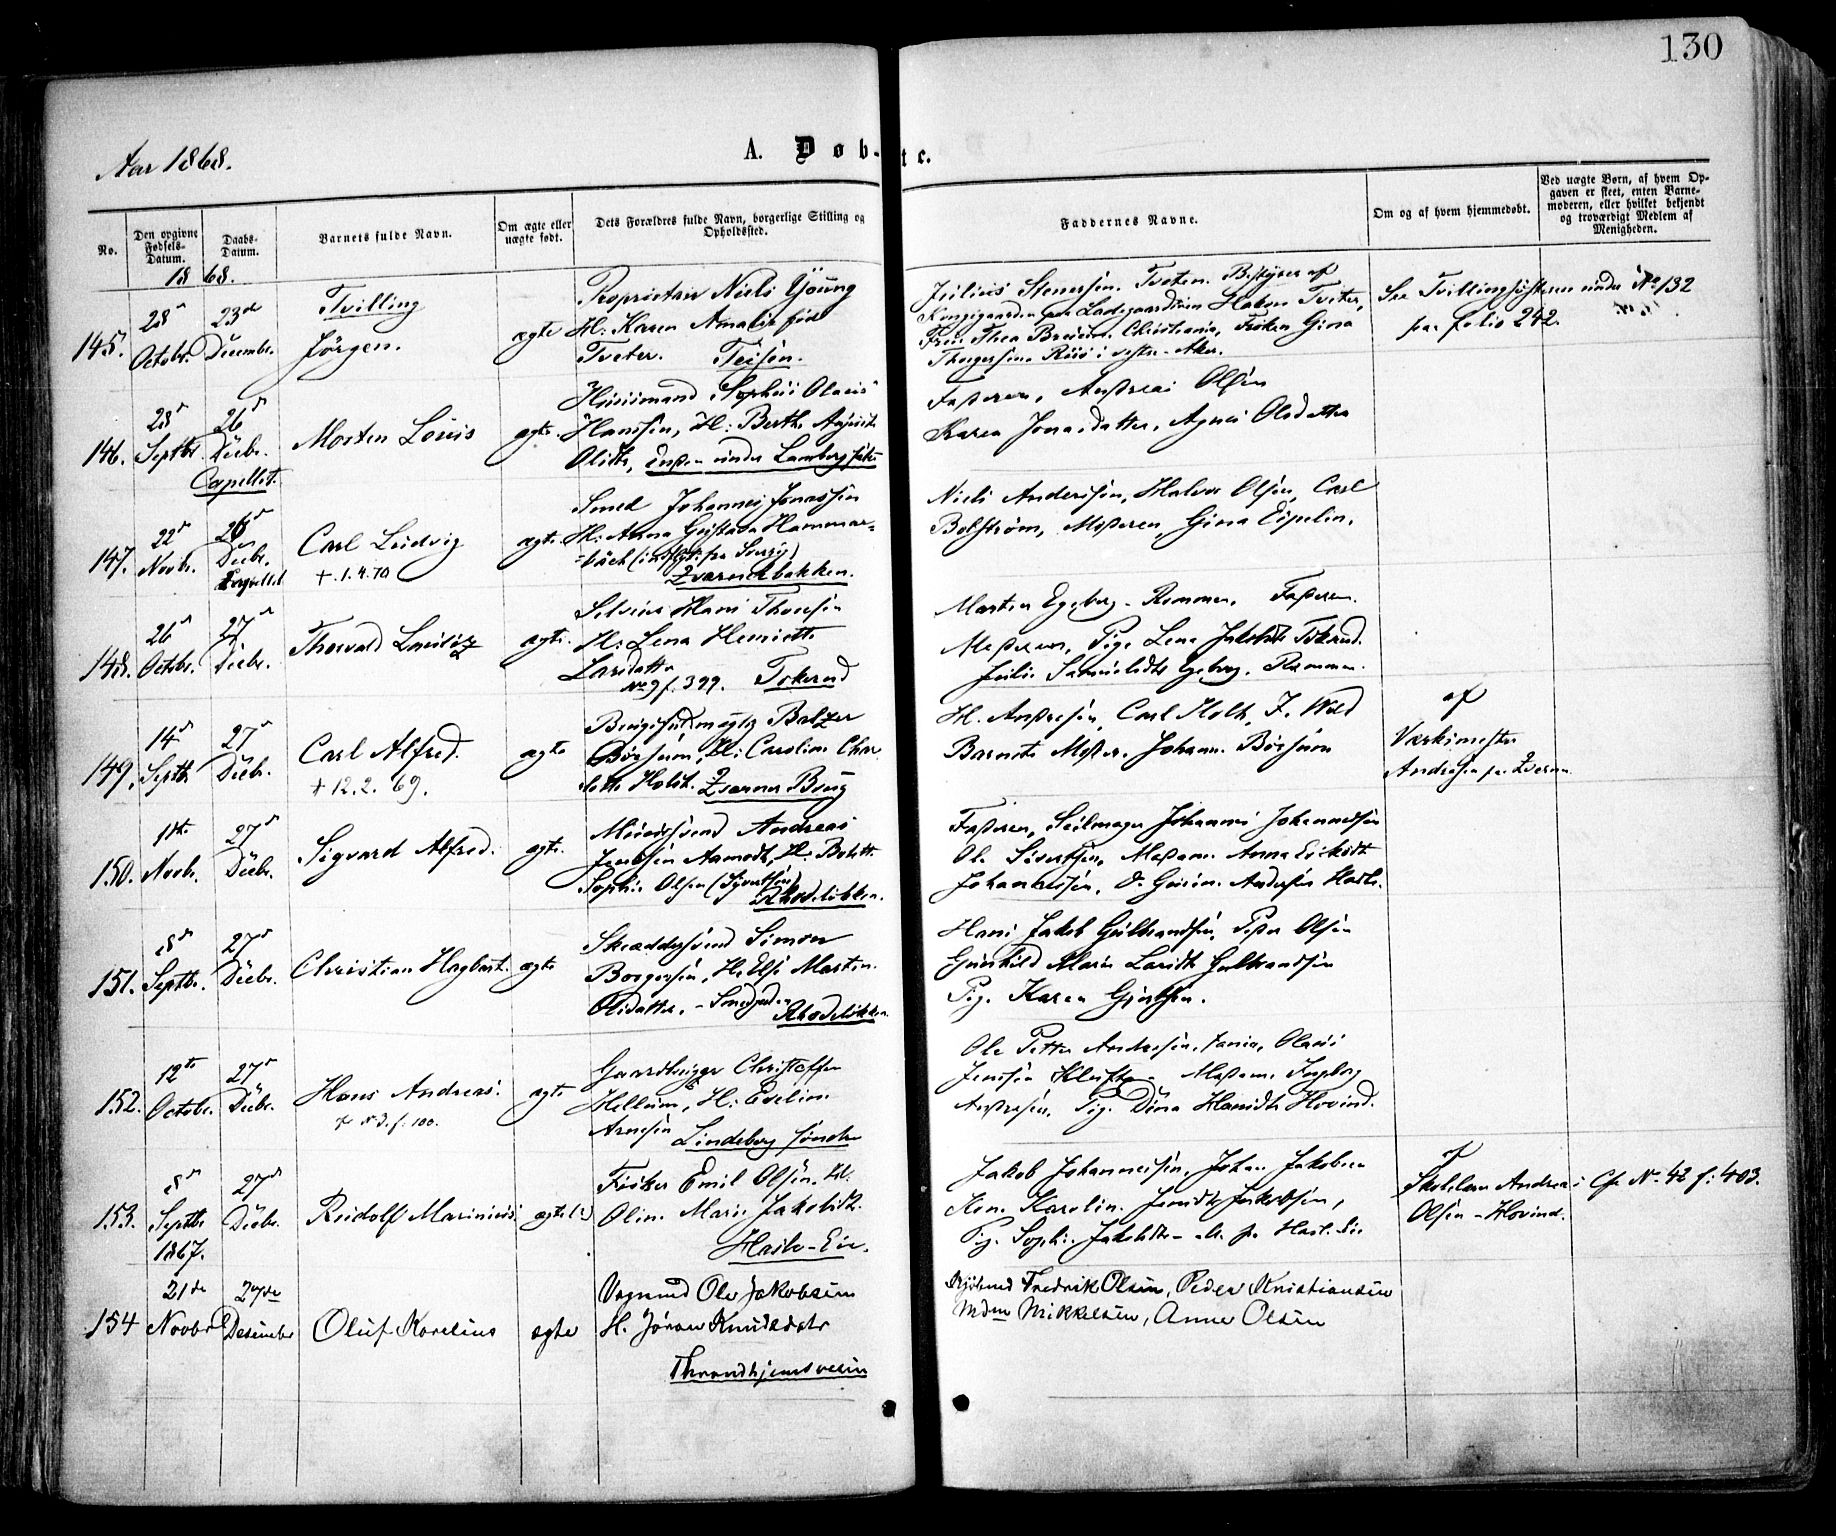 130
Aar 1868.
A. Døb- te.
No.
Den opgivne Fødsels-Datum.
Daabs-Datum.
Barnets fulde Navn.
Om ægte eller uægte født.
Dets Forældres fulde Navn, borgerlige Stilling og Opholdssted.
Faddernes Navne.
Om og af hvem hjemmedøbt.
Ved uægte Børn, af hvem Opgaven er skeet, enten Barnemoderen, eller hvilket bekjendt og troværdigt Medlem af Menigheden.
1868.
145.
28de Octobr.
23de Decembr.
Tvilling
Jörgen.
ægte
Proprietair Niels Young
H: Karen Amalie fød
Tveter. Teisen.
Julius Stenersen. Tveten. Bestyrer af
Kongsgaarden paa Ladegaardsøen Halvor Tveter,
Thea
Christiania, Frøken Gina
Thorgersen Riis i vestre-Aker.
See Tvillingsøsteren under No 132
paa folio 242.
146.
28de Septbr.
26de Decbr.
Capellet.
Morten Louis
ægte.
Huusmand Sophus Olaus
Hanssen, H: Berthe
Olsdtr,
under
Faderen, Andreas Olsen
Karen Jonasdatter, Agnes Olsdatter
147.
22de Novbr.
26de Decbr.
Capellet
Carl Ludvig
+ 1.4.70
ægte.
Smed Johannes Jonassen
H: Anna Gustava Hammar-
=bäck (indflyt: fra Sverig)
Kværnerbakken.
Niels Andersen, Halvor Olsen, Carl
Bolström, Moderen, Gina
148.
26de Octobr.
27de Decbr.
Thorvald Lauritz
ægte.
Selveier Hans Thoresen
H: Lena Henriette
Larsdatter
No 9 f. 399. Tokerud
Morten Egeberg - Rommen. Faderen.
Moderen, Pige Lena Jakobsdtr Tokerud.
Julie Samuelsdtr Egeberg. Rommen.
149.
14de Septbr.
27de Decbr.
Carl Alfred.
+ 12.2.69.
ægte
Balzer
Børsum, H: Caroline Char
lotte Holst. Kværner Brug
H. Andresen, Carl Holth, F. Wold
Barnets Moder. Johanne Børsum
af
Værksmester
Andresen paa Kværner
150.
11te Novbr.
27de Decbr.
Sigvard Alfred.
ægte.
Muursvend Andreas
Jacobsen Aamodt, H:
Sophie Olsen (Syvertsen)
Rhodeløkken.
Faderen, Seilmager Johannes Johannessen
Ole Sivertsen, Madam Anna
Johannessen, Andersen
151.
8de Septbr.
27de Decbr.
Christian Hagbart.
ægte
Skræddersvend Simon
Borgersen, H: Else Martine
Olsdatter. -
Rhodeløkken
Hans Jakob Gulbrandsen, Peder Olsen
Gunhild Marie Larsdtr Gulbrandsen
Pige Karen
152.
12te Octobr.
27de Decbr.
Hans Andreas.
ægte
Gaardbruger Christoffer
Hellum, H: Eveline
Arnesen Lindeberg søndre
Ole Petter Andresen, Olaus
Jensen Madam Ingeborg
Andresen. Pige Dina Hansdtr Hovind.
153.
8de Septbr. 1867.
27de Decbr.
Rudolf Marinius.
ægte(:)
Fisker Emil Olsen, H:
Oline Marie Jakobsdtr.
Hasle-Eie.
Jakob Johannesen, Johan Jakobsen
Kone Karoline Jensdtr Jakobsen,
Pige Sophie Jakobsdtr
af
Skolelærer Andreas
Olsen - Hovind.
Cfr No. 42 f: 403.
154
21de Novbr
27de Desember
Oluf Korelius
ægte
Vognmd Ole Jakobsen
H. Jøran Knudsdatr
Throndhjemsveien
Fredrik Olsen, Peder Kristiansen
Mdm Mikkelsen, Anne Olsen